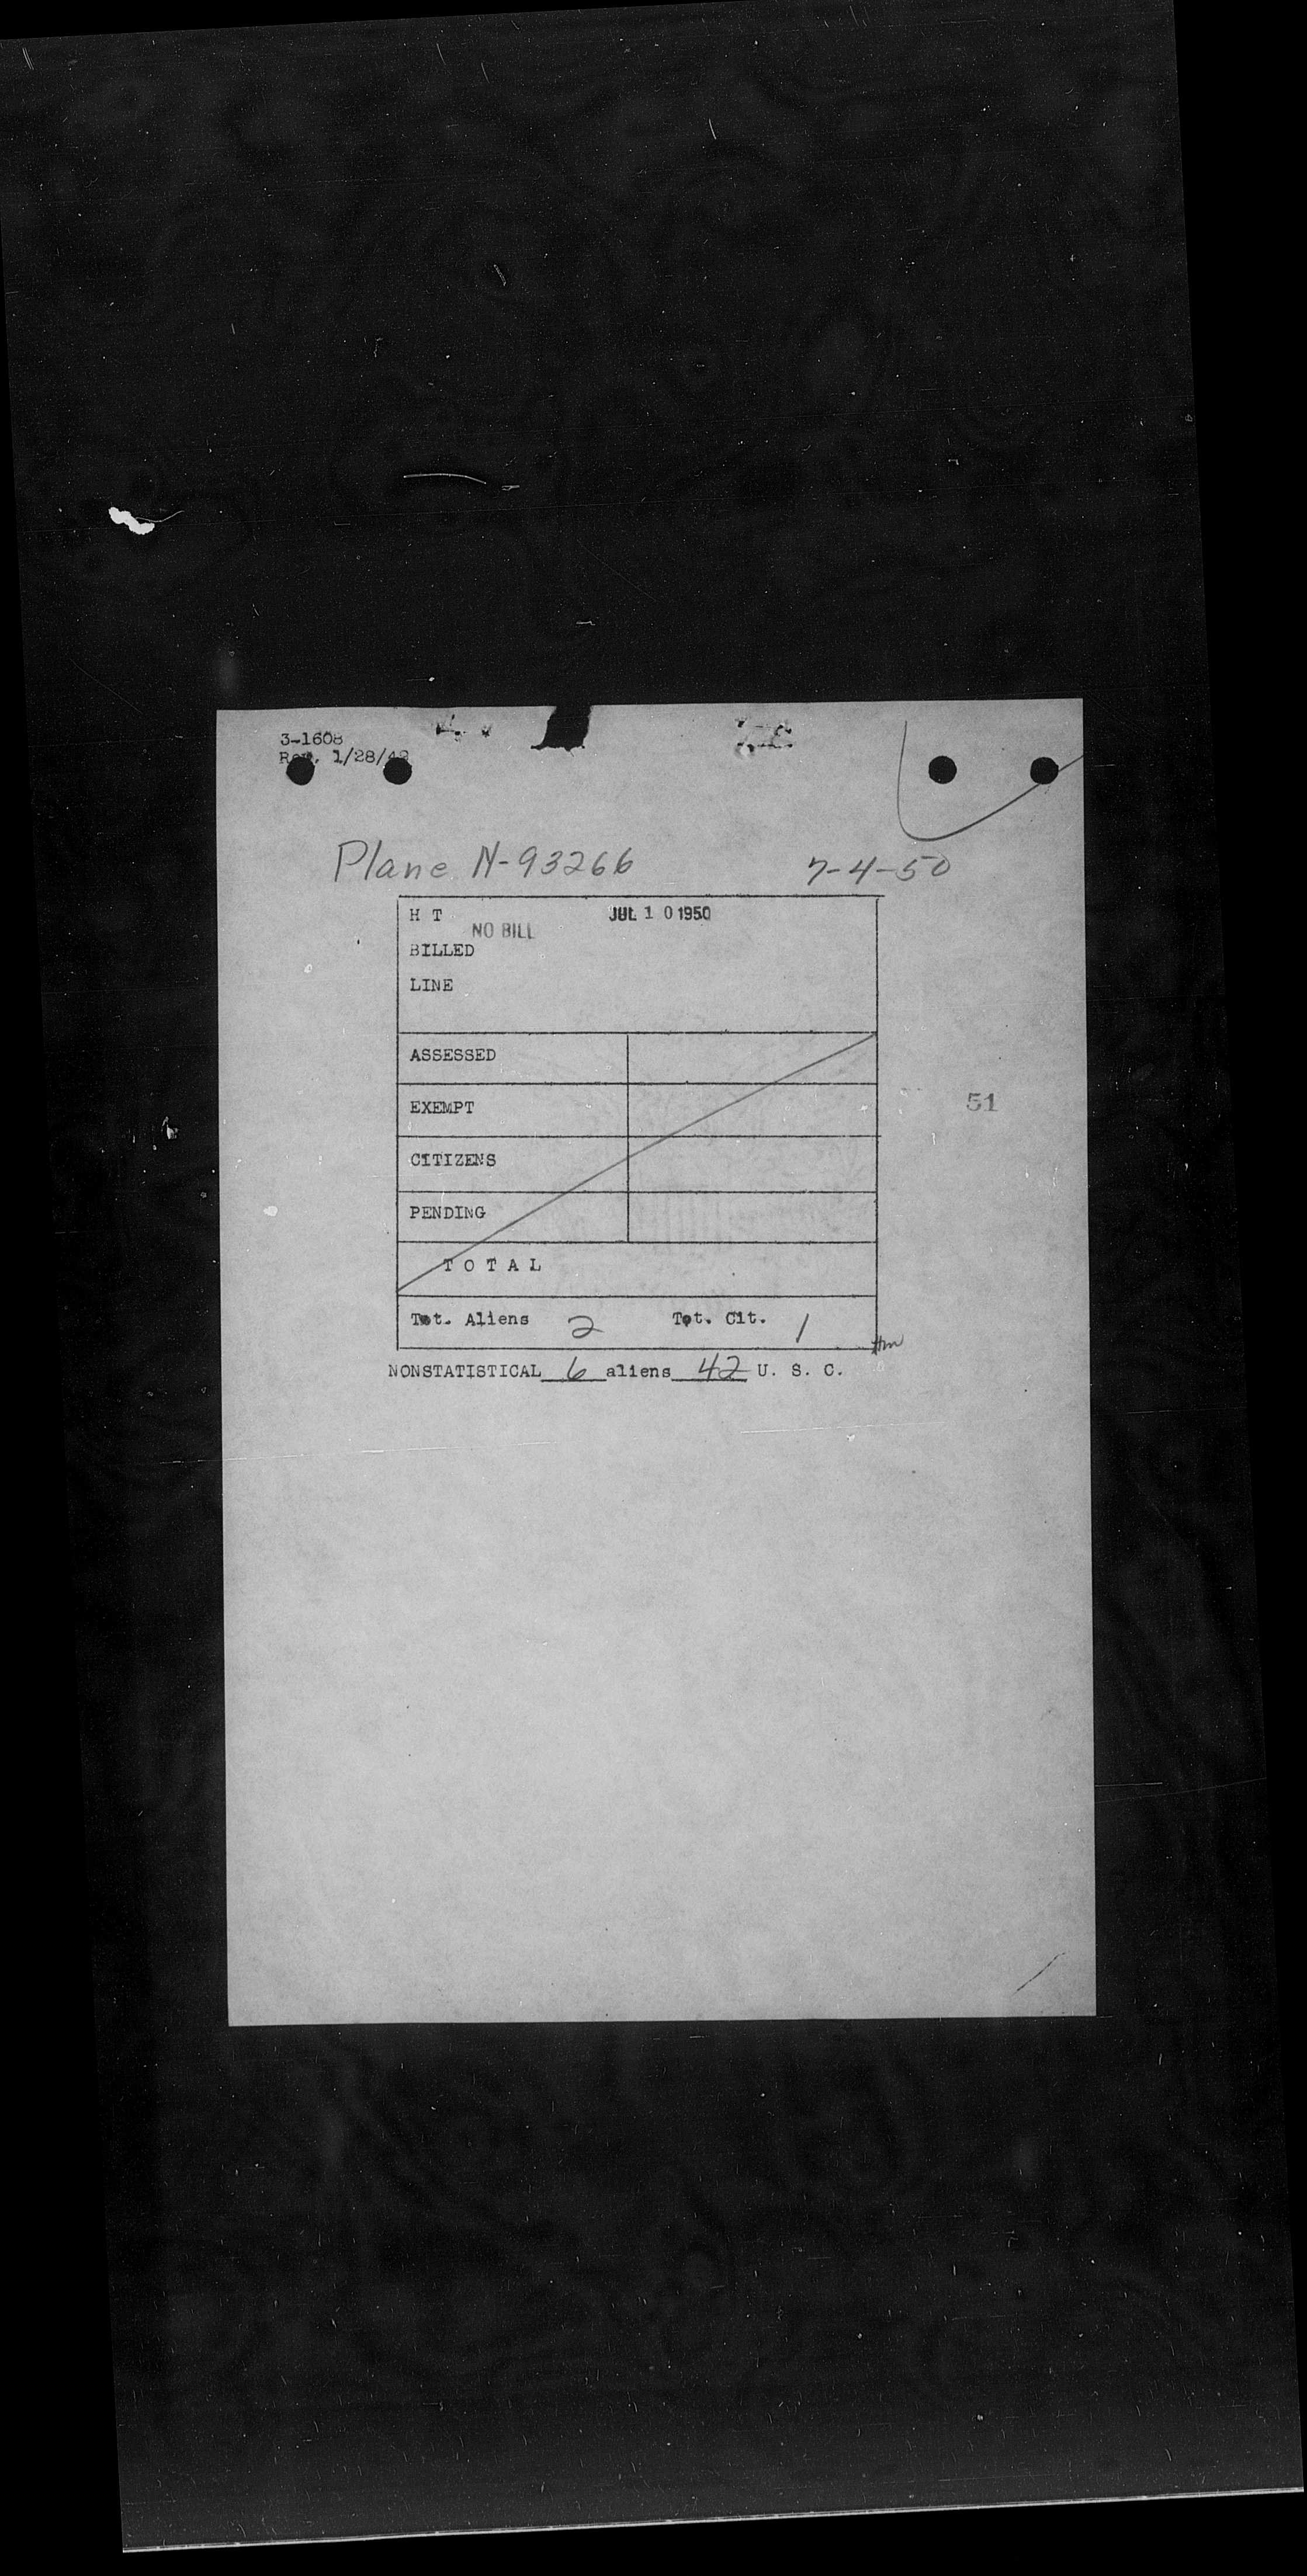 3-1608
Rev. 1/28/48
Plane N-93266 7-4-50
H T JUL 1 0 1950
NO BILL
BILLED
LINE
ASSESSED
EXEMPT
51
CITIZENS
PENDING
T O T A L
Tot. Aliens 2 Tot. Cit. 1
NONSTATISTICAL 6 aliens 42 U. S. C.